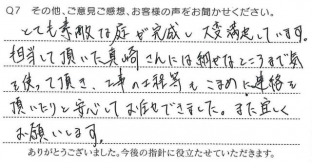 Q7 その他、ご意見ご感想、お客様の声をお聞かせください。
とても素敵な庭が完成し大変満足しています。
担当して頂いた真崎さんには細かなところまで気
を使って頂き、工事の工程等もこまめに連絡を
頂いたりと安心してお任せできました。また宜しく
お願いします。
ありがとうございました。今後の指針に役立たせていただきます。